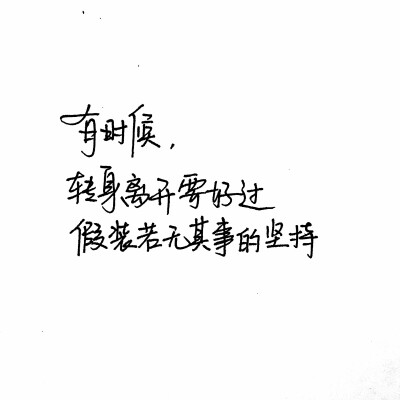 有时候，
转身离开要好过
假装若无其事的坚持